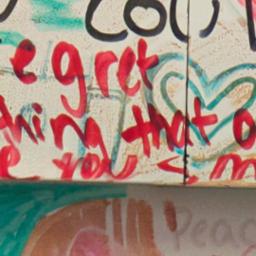 COU
egret
thing that a
e you < m
Peac